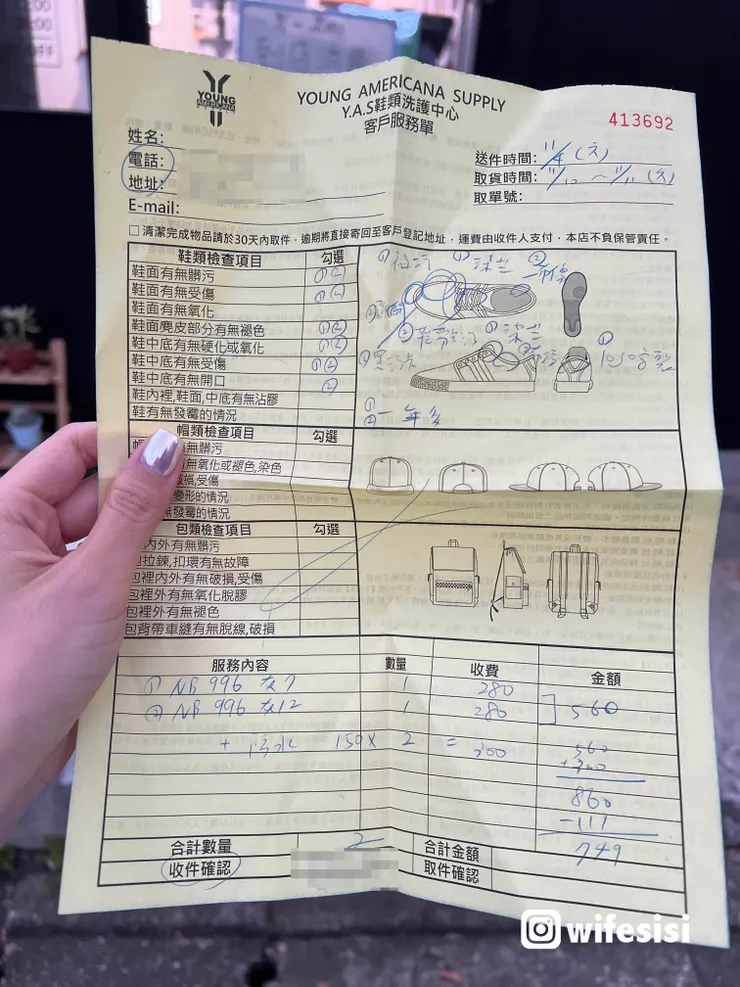 YOUNG
AMERICANA
YOUNG AMERICANA SUPPLY
Y.A.S鞋類洗護中心
客戶服務單
413692
姓名:
電話:
地址:
E-mail:
送件時間: 11/4 (天)
取貨時間: 11/10 ~ 11/11 (天)
取單號:
□ 清潔完成物品請於30天內取件,逾期將直接寄回至客戶登記地址,運費由收件人支付,本店不負保管責任。
鞋類檢查項目 勾選
鞋面有無髒污 ①②
鞋面有無受傷 ①②
鞋面有無氧化
鞋面麂皮部分有無褪色 ①②
鞋中底有無硬化或氧化 ①②
鞋中底有無受傷 ①②
鞋中底有無開口 ②
鞋內裡,鞋面,中底有無沾膠
鞋有無發霉的情況
一年多
帽類檢查項目 勾選
無髒污
無氧化或褪色,染色
損,受傷
變形的情況
無發霉的情況
包類檢查項目 勾選
內外有無髒污
包拉鍊,扣環有無故障
包裡內外有無破損,受傷
包裡外有無氧化脫膠
包裡外有無褪色
包背帶車縫有無脫線,破損
服務內容 數量 收費 金額
① NB 996 灰7 1 280
② NB 996 灰12 1 280 ] 560
+ 防水 150 x 2 = 300
560
+300
860
-111
749
合計數量 2 合計金額
收件確認 取件確認
wifesisi